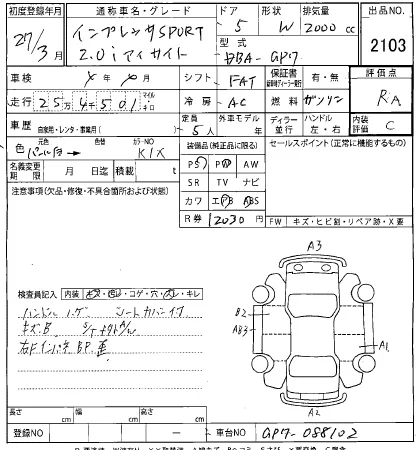 初度登録年月 通称車名・グレード ドア 形状 排気量 出品NO.
27/3月 インプレッサSPORT 2.0i アイサイト 5 W 2000 cc 2103
型式 DBA-GP7
車検 X年 X月 シフト FAT 保証書 有・無 評価点
走行 25万4千501 マイル キロ 冷房 AC 燃料 ガソリン RA
車歴 自家用・レンタ・事業用( ) 定員 5人 外車モデル 年 ディーラー 並行 ハンドル 左・右 内装評価 C
色 元色 パール白 → 色替 カラーNO K1X 装備品(純正品に限る) セールスポイント(正常に機能するもの)
名義変更期限 月 日迄 積載 t PS PW AW
注意事項(欠品・修復・不具合箇所および状態) SR TV ナビ
カワ エアB ABS
R券 12030 円 FW キズ・ヒビ・リペア跡・X要
A3
検査員記入 内装 キズ・汚れ・コゲ・穴・スレ・キレ
ハンドル ハゲ シートカバーイブ
キズB
右Fインパネ BP. 悪
B2
AB3
A1
A2
長さ cm 幅 cm 高さ cm
登録NO ー 車台NO GP7-088102